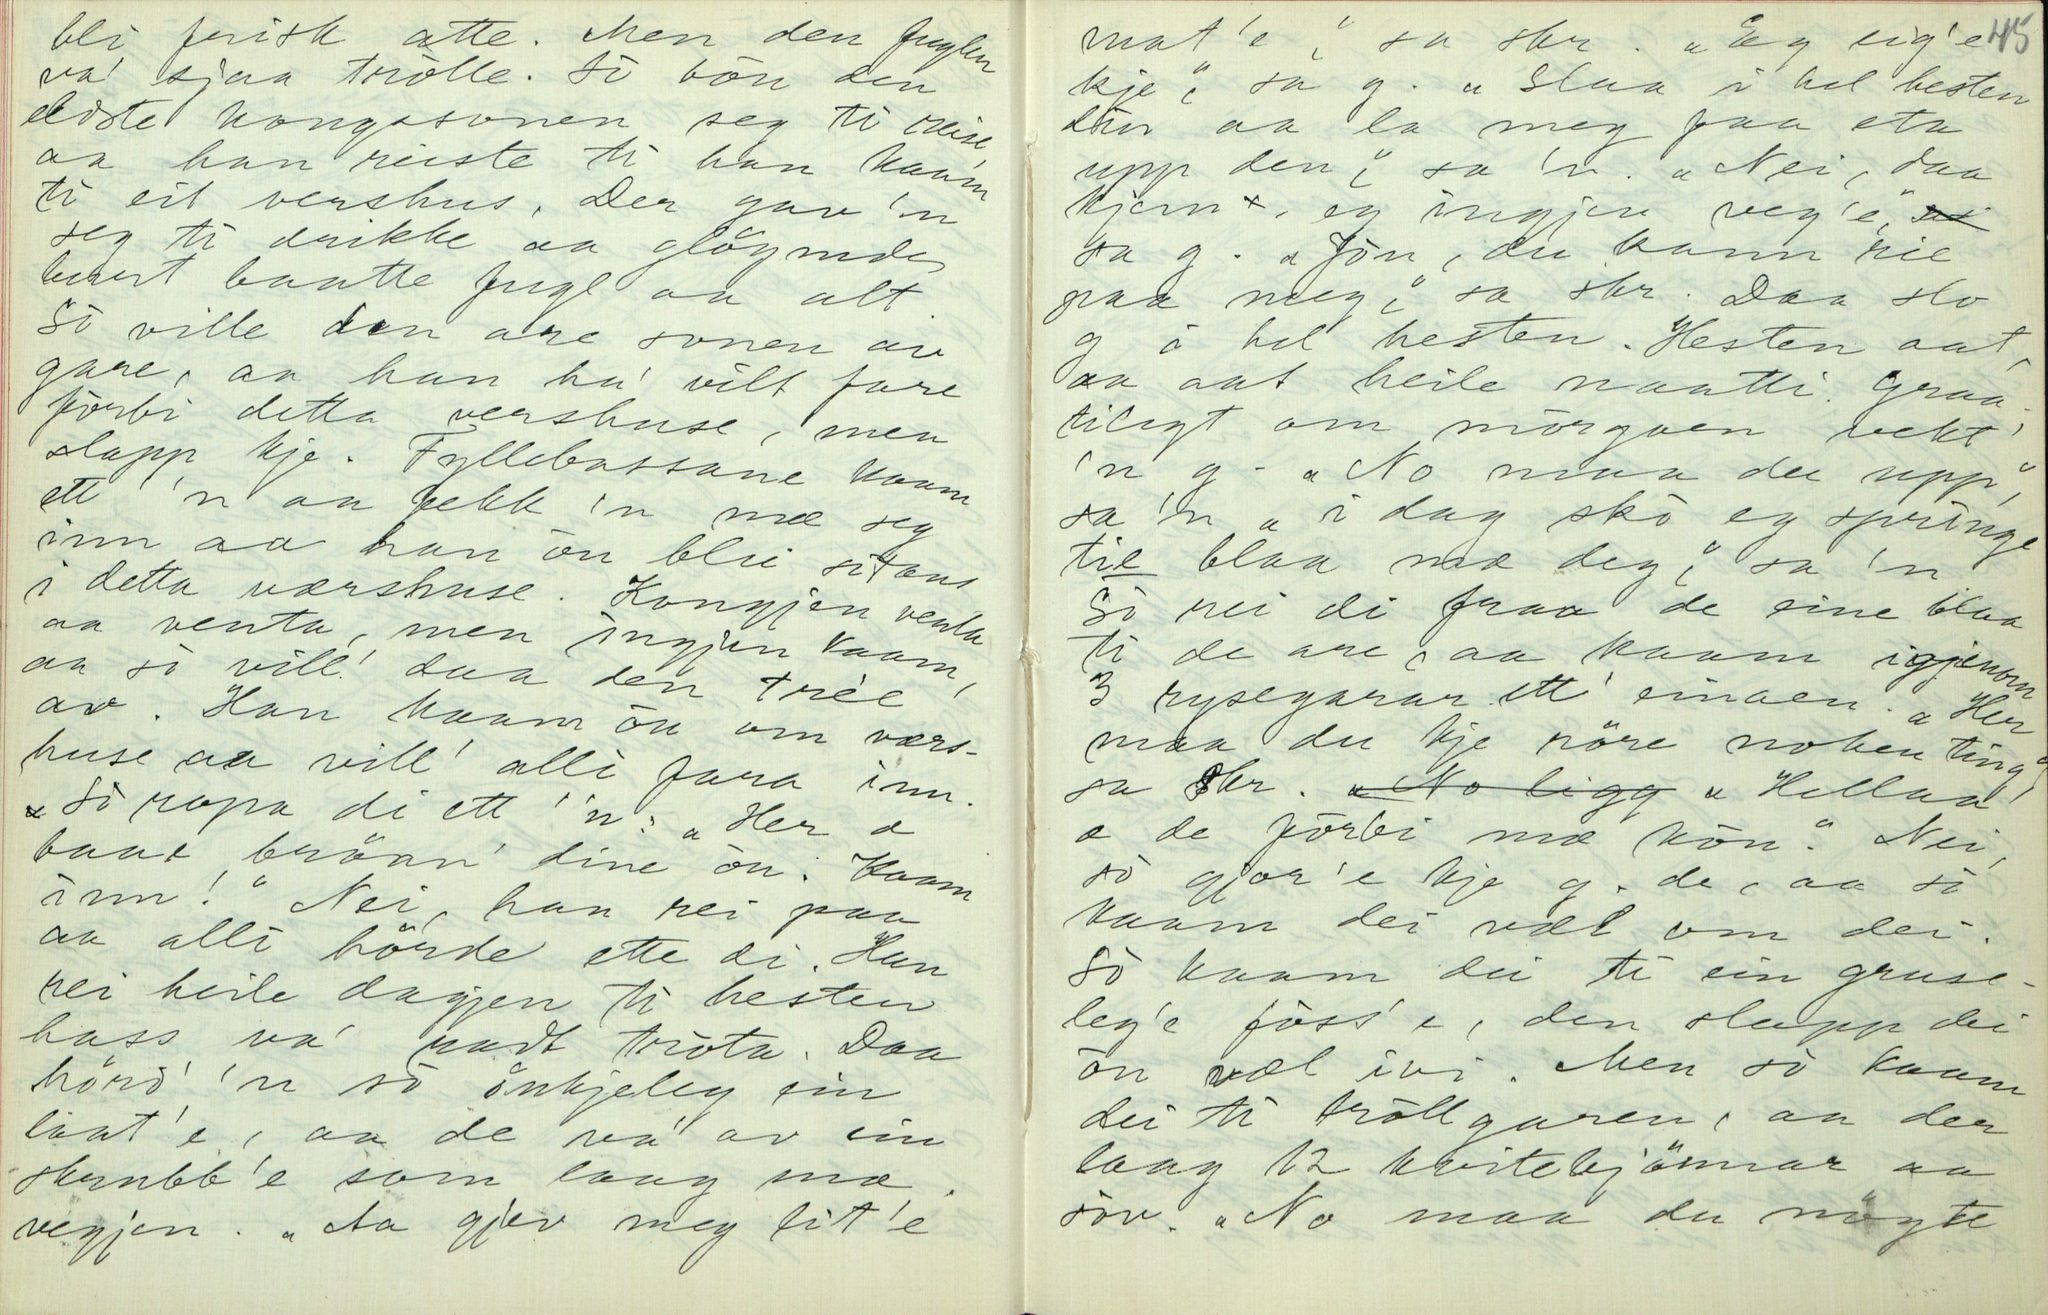 bli frisk atte. Men den fuglen
va' sjaa trolle. Sò bòn den
eldste kongssonen seg ti reise,
aa han reiste ti han kaam
ti eit vershus. Der gav 'n
seg ti drikke aa glöymde
burt baatte fugl aa alt.
Sò ville den are sonen av
gare, aa han ha' vilt fare
förbi detta vershuse, men
slapp kje. Fyllebassane kaam
ett 'n aa fekk 'n mæ seg
inn aa han òn blei sitans
i detta værshuse. Kongjen venta
aa venta, men ingjen kaam,
aa sò vill' daa den trée
av. Han kaam òn om værs-
huse aa vill' alli fara inn.
Sò ropa di ett 'n: „Her æ
baae brönn' dine òn. Kaam
inn!" Nei, han rei paa
aa alli hörde ette di. Han
rei heile dagjen ti hesten
hass va' rædt tròta. Daa
hörd' 'n sò önkjeleg ein
laat'e, aa de va' av ein
skrubb'e som laag mæ
vegjen. „Aa gjev meg lit'e
45
mat'e", sa skr. „Eg eig'e
kje", sa g. „Slaa i hel hesten
din aa la meg faa eta
upp den", sa 'n. „Nei, daa
kjem eg ingjen veg'e",
sa g. „Jòn, du kann rie
paa meg", sa skr. Daa slo
g i hel hesten. Hesten aat,
aa aat heile naatti. Graa-
tilegt om mörgoen vekt'
'n g. „No maa du upp",
sa 'n „i dag skò eg springe
til blaa mæ deg", sa 'n
Sò rei di fraa de eine blaa
ti de are, aa kaam igjenom
3 rysegarar ett' einaen. „Her
maa du kje röre noken ting",
sa Skr. „No ligg „Hellaa
æ de förbi mæ kòn." Nei,
sò gjor'e kje g. de, aa sò
kaam dei væl om dei.
Sò kaam dei ti ein gruse-
leg'e föss'e, den slapp dei
òn væl ivi. Men sò kaam
dei ti tröllgaren, aa der
laag 12 kvitebjönnar aa
söv. „No maa du nögte